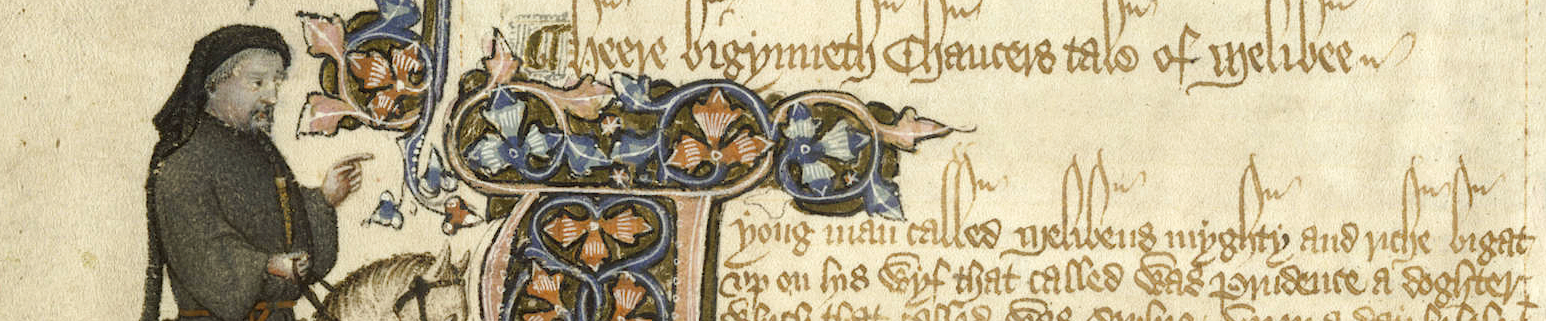 Heere bigynneth Chaucers tale of Melibee
yong man called Melibeus myghty and riche bigat
up on his wyf that called was Prudence a doghter
Which that called was